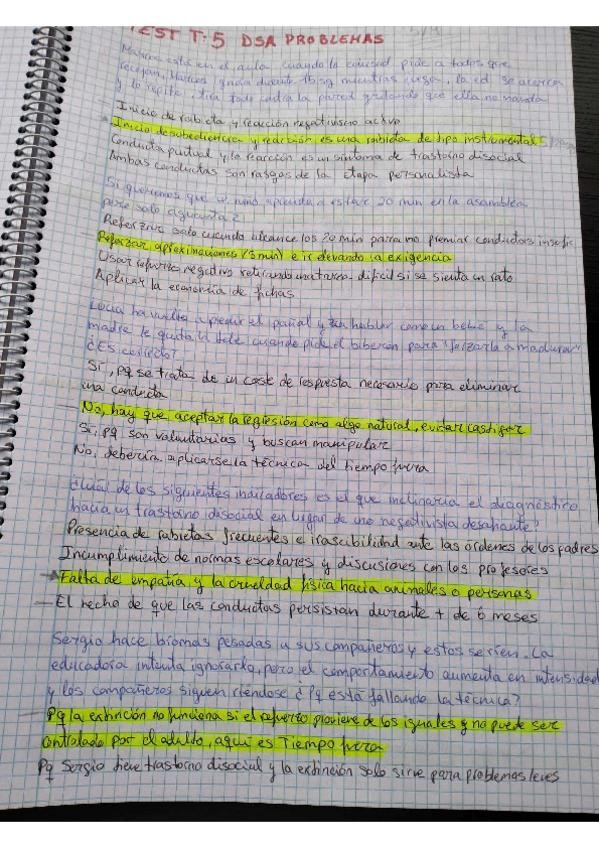 TEST T:5 DSA PROBLEMAS
Marcos está en el aula, cuando la educad pide a todos que
recojan, Marcos ignora durante 15sg mientras juega, la ed. se acerca
y lo repite, tira todo contra la pared gritando que ella no manda
- Inicio de rabieta y reacción negativismo activo
Inicio desobediencia y reacción es una rabieta de tipo instrumental
Conducta puntual y la reacción es un síntoma de trastorno disocial
Ambas conductas son rasgos de la etapa personalista
Si queremos que un niño aprenda a estar 20 min en la asamblea
pero solo aguanta 2
Reforzar solo cuando alcance los 20 min para no premiar conductas insufic
Reforzar aproximaciones (3 min) e ir elevando la exigencia
Usar refuerzo negativo retirando una tarea difícil si se sienta un rato
Aplicar la economía de fichas
Lucía ha vuelto a pedir el pañal y a hablar como un bebé y la
madre le quita la tele cuando pide el biberón para "forzarla a madurar"
¿ES correcto?
Sí, pq se trata de un coste de respuesta necesario para eliminar
una conducta
- No, hay que aceptar la regresión como algo natural, evitar castigar
Sí, pq son voluntarias y buscan manipular
No, debería aplicarse la técnica del tiempo fuera
¿Cuál de los siguientes indicadores es el que inclinaría el diagnóstico
hacia un trastorno disocial en lugar de uno negativista desafiante?
Presencia de rabietas frecuentes e irascibilidad ante las órdenes de los padres
Incumplimiento de normas escolares y discusiones con los profesores
Falta de empatía y la crueldad física hacia animales o personas
- El hecho de que las conductas persistan durante + de 6 meses
Sergio hace bromas pesadas a sus compañeros y estos se ríen. La
educadora intenta ignorarlo, pero el comportamiento aumenta en intensidad
y los compañeros siguen riéndose ¿Pq está fallando la técnica?
- Pq la extinción no funciona si el refuerzo proviene de los iguales y no puede ser
controlado por el adulto, aquí es Tiempo fuera
Pq Sergio tiene trastorno disocial y la extinción solo sirve para problemas leves